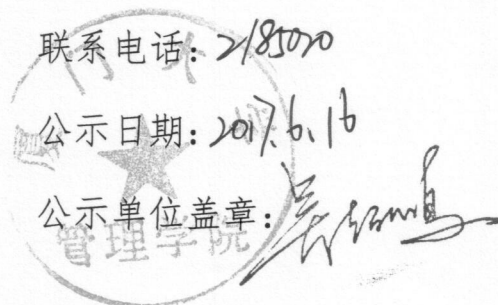 联系电话：2185020
公示日期：2017.6.16
公示单位盖章：
厦门大学
管理学院